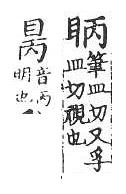 眪
筆皿切又孚
皿切視也
音丙
明也